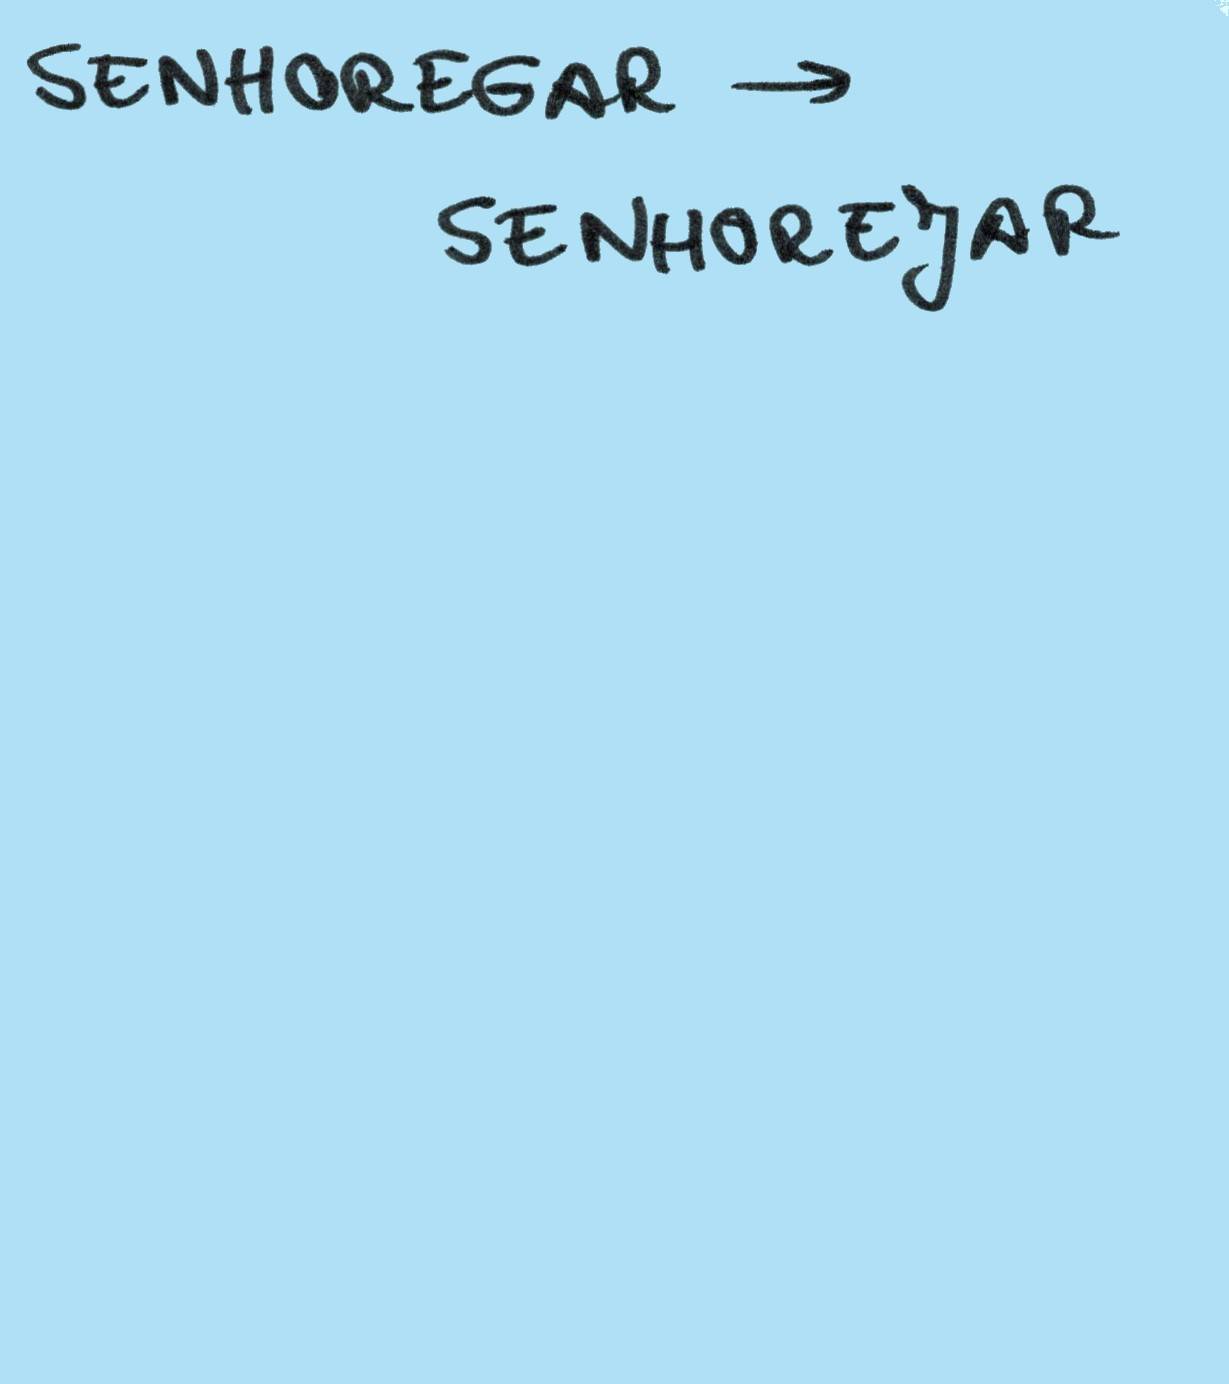 SENHOREGAR →
SENHOREJAR